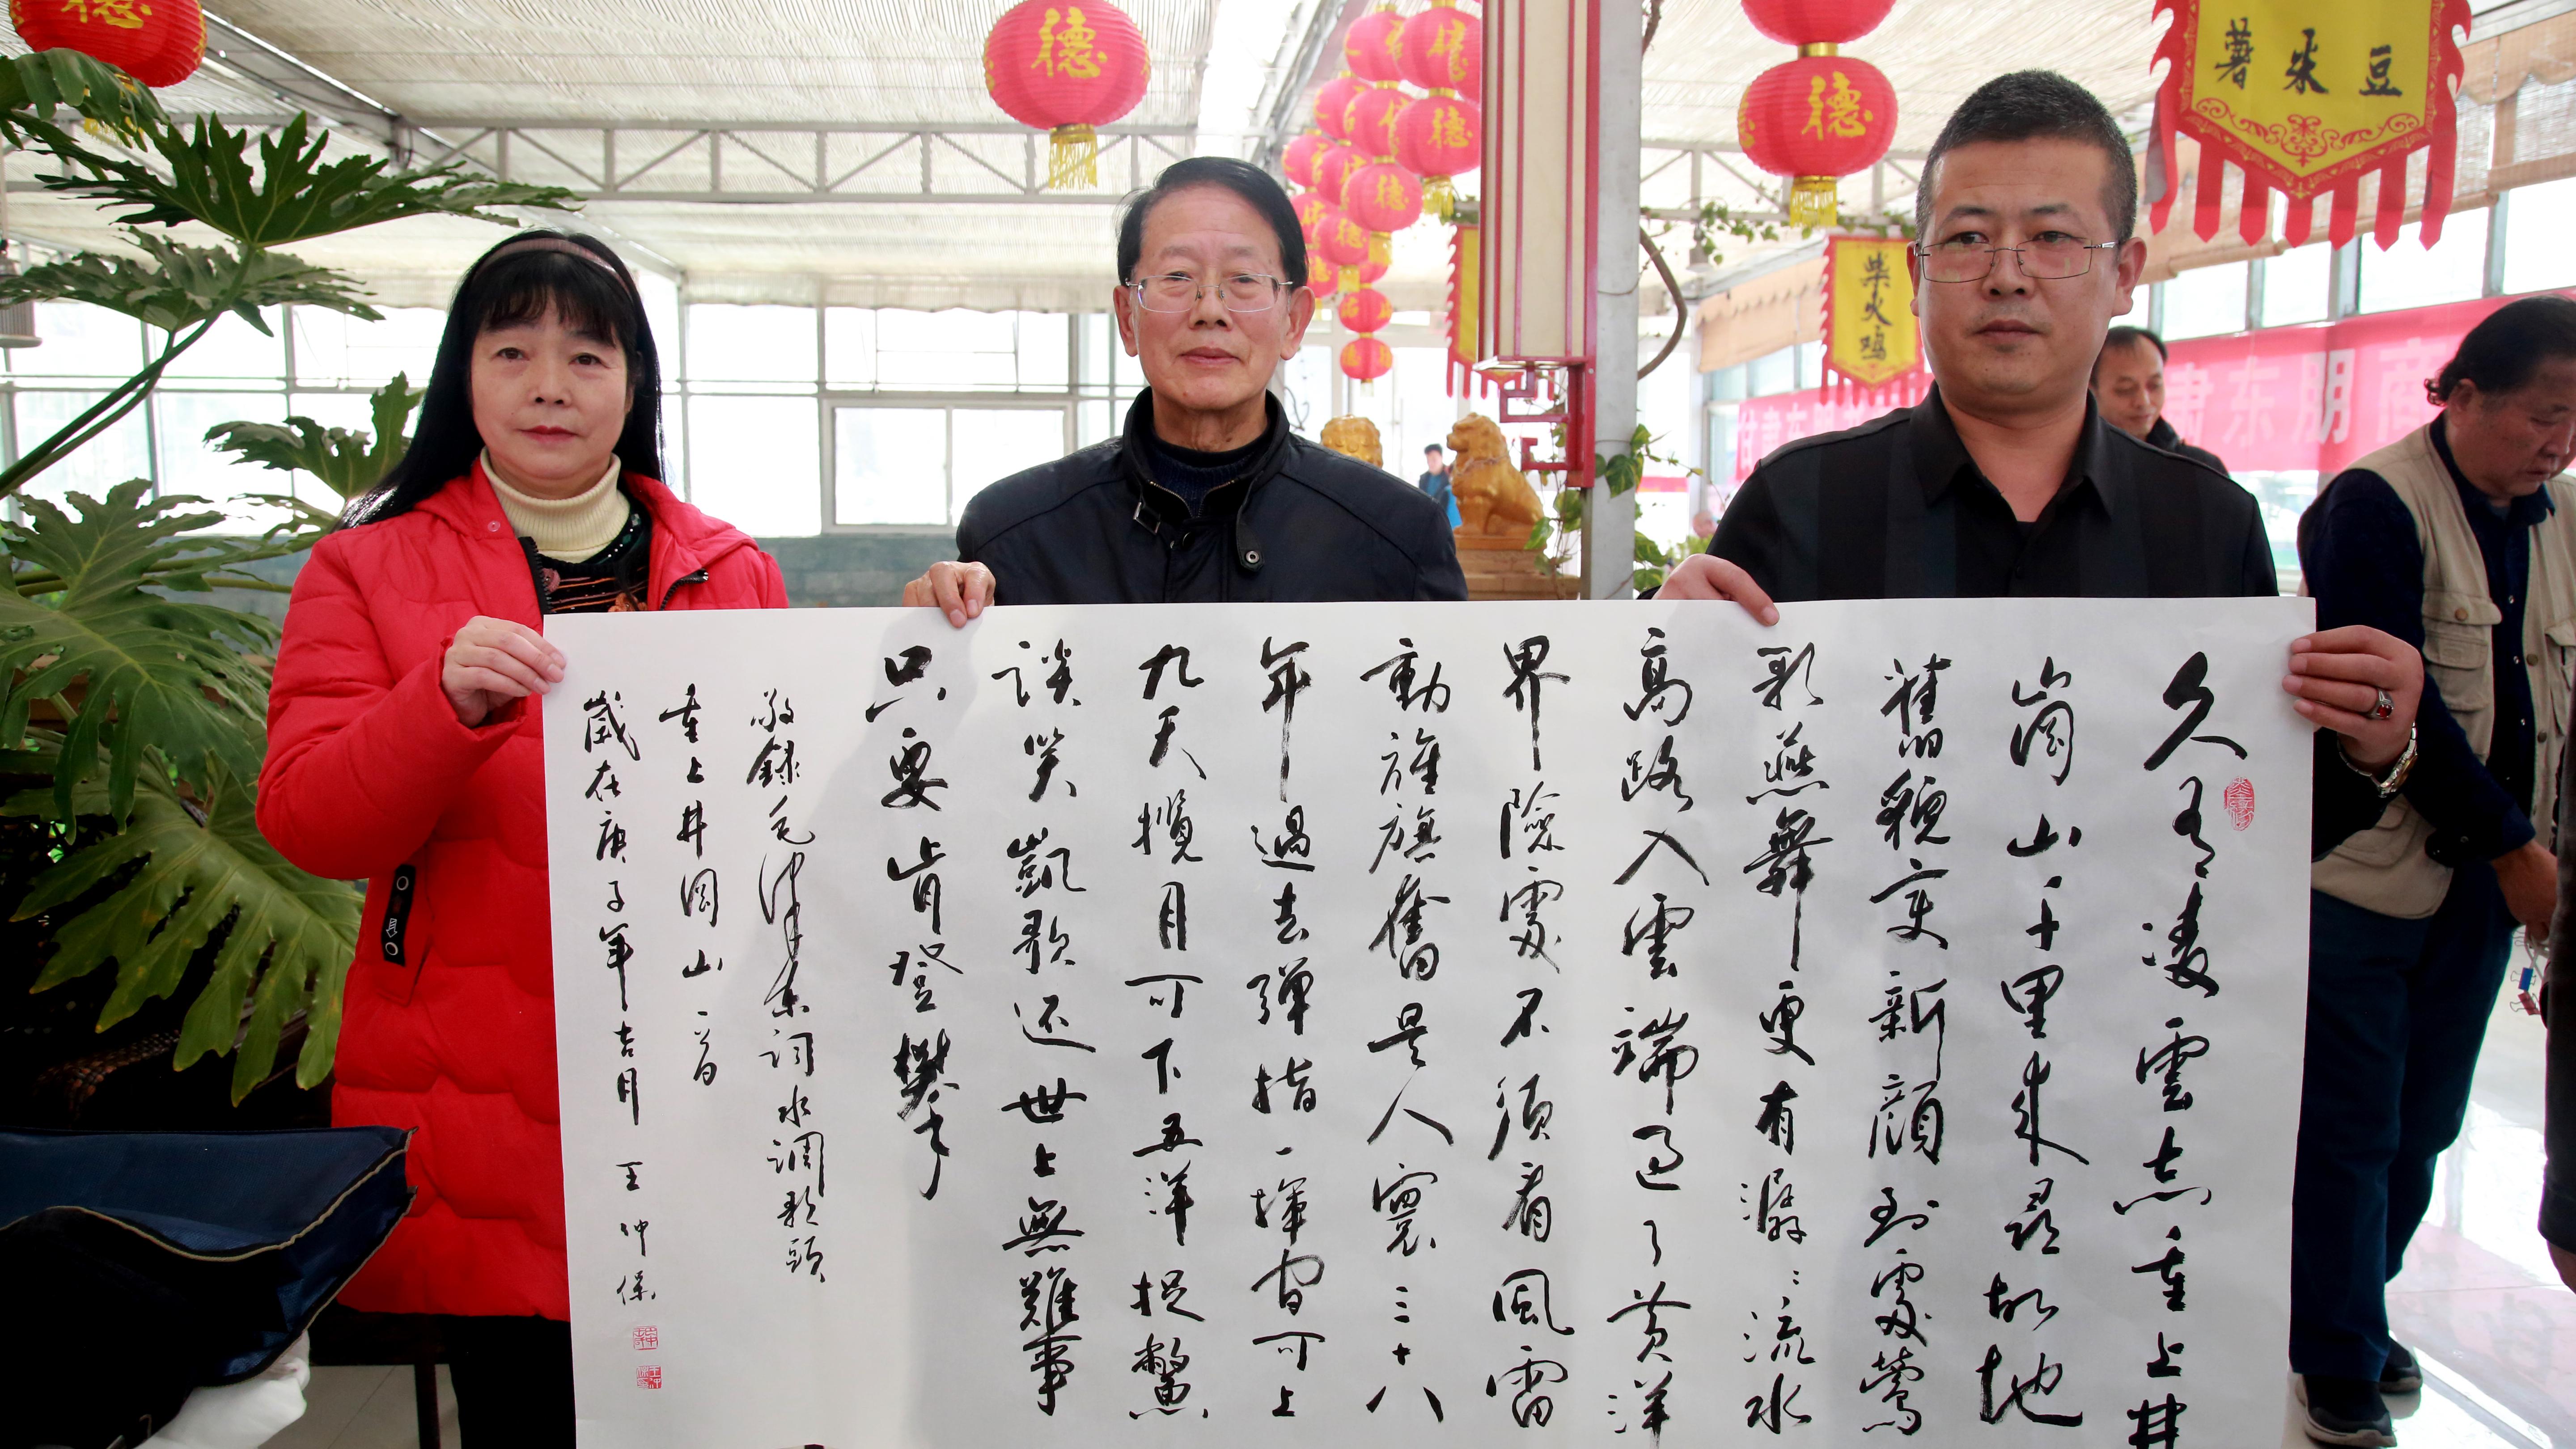 德
德
德
薯米豆
柴火鸡
甘肃东朋
肃东朋商
久有凌雲志重上井
崗山千里来尋故地
舊貌变新顔到處鶯
歌燕舞更有潺〻流水
高路入雲端過了黄洋
界險處不須看風雷
動旌旗奮是人寰三十八
年過去彈指一揮間可上
九天攬月可下五洋捉鱉
談笑凱歌还世上無難事
只要肯登攀
敬録毛泽東词水调歌頭
重上井岡山一首
歲在庚子年吉月 王仲保